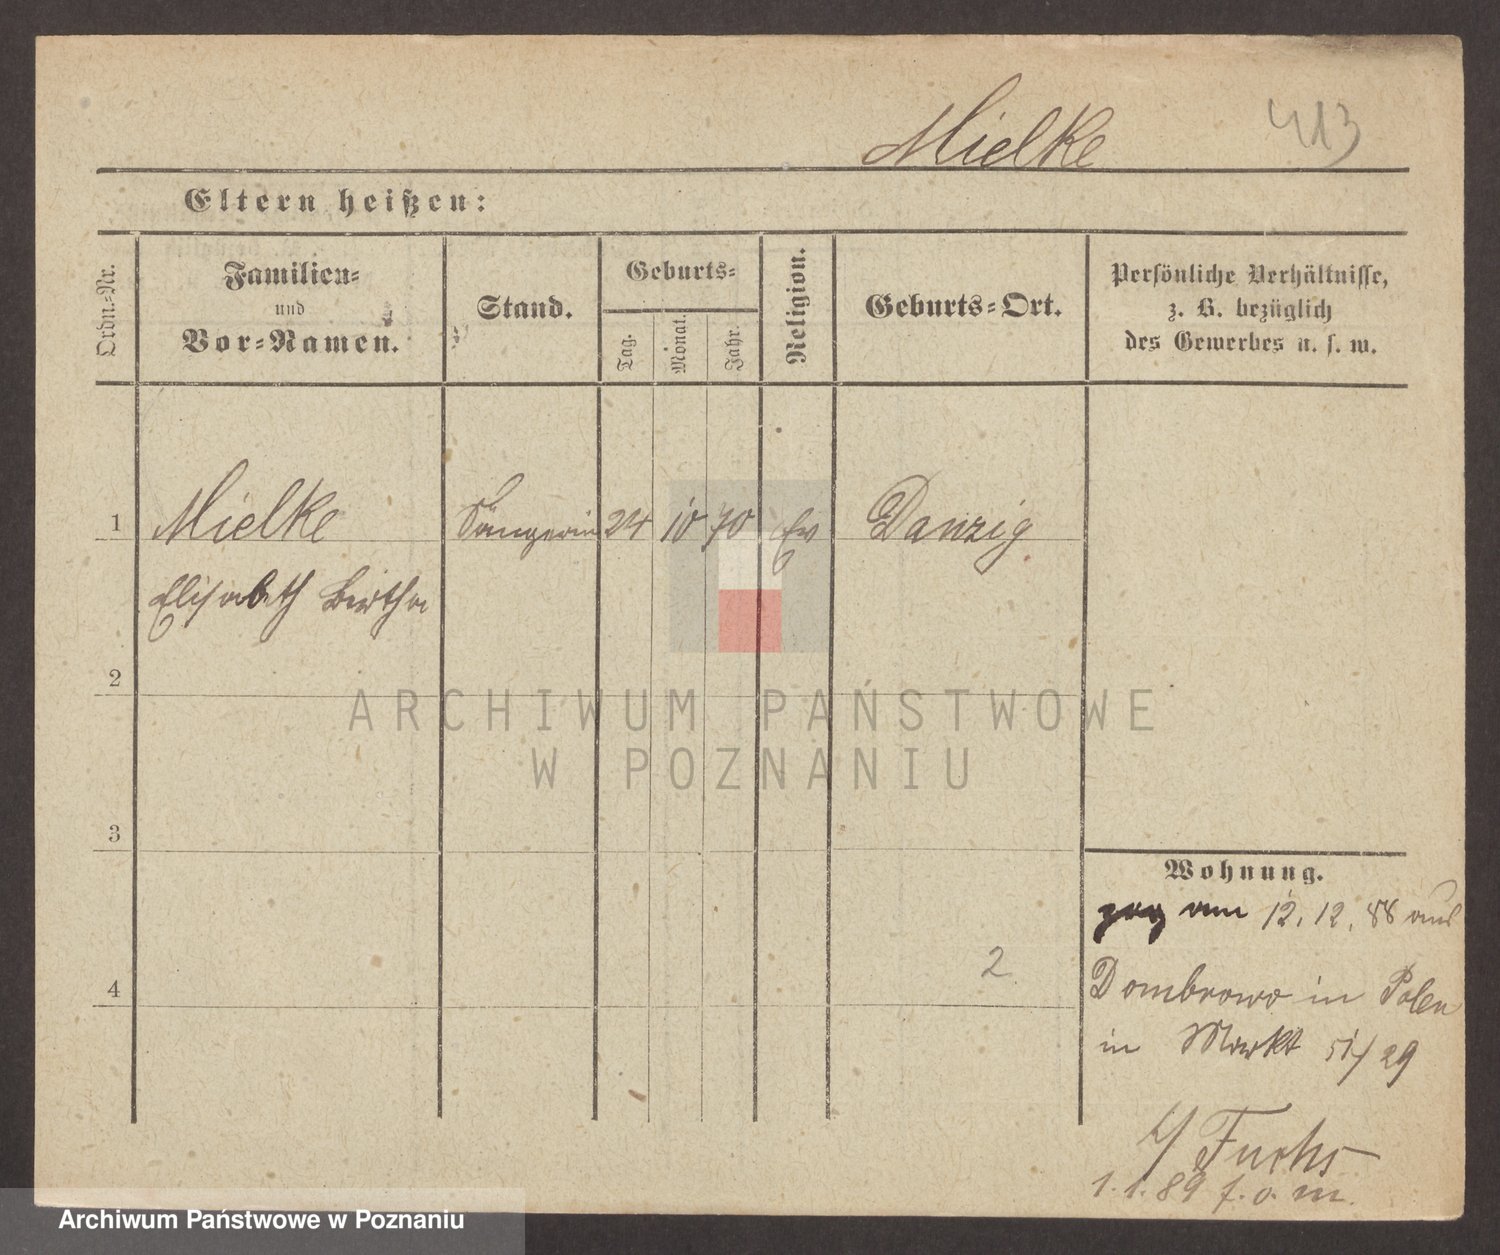 Mielke 413
Eltern heißen:
Ordn.=Nr.
Familien=
und
Vor=Namen.
Stand.
Geburts=
Tag.
Monat.
Jahr.
Religion.
Geburts=Ort.
Persönliche Verhältnisse,
z. B. bezüglich
des Gewerbes u. s. w.
1 Mielke Sängerin 24 10 70 Ev Danzig
Elisabeth Bertha
2
ARCHIWUM PAŃSTWOWE
W POZNANIU
3
Wohnung.
zog am 12. 12. 88 aus
2
Dombrowo in Polen
4
in Markt 51/29
Fuchs
1. 1. 89 f. o. m.
Archiwum Państwowe w Poznaniu